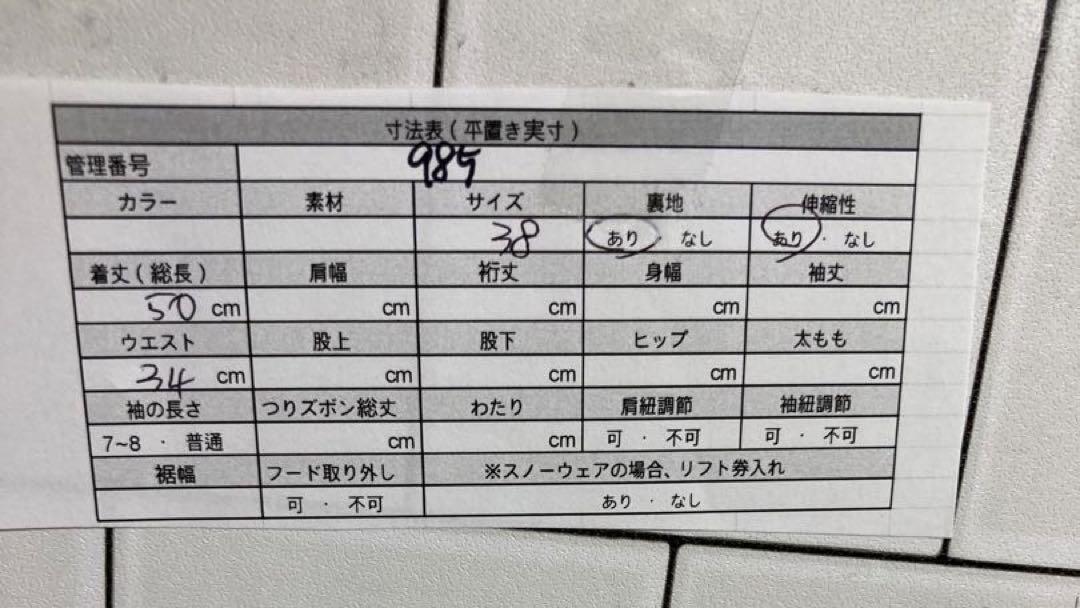 寸法表(平置き実寸)
管理番号 985
カラー 素材 サイズ 裏地 伸縮性
38 あり · なし あり · なし
着丈(総長) 肩幅 裄丈 身幅 袖丈
50 cm cm cm cm cm
ウエスト 股上 股下 ヒップ 太もも
34 cm cm cm cm cm
袖の長さ つりズボン総丈 わたり 肩紐調節 袖紐調節
7~8 · 普通 cm cm 可 · 不可 可 · 不可
裾幅 フード取り外し ※スノーウェアの場合、リフト券入れ
可 · 不可 あり · なし